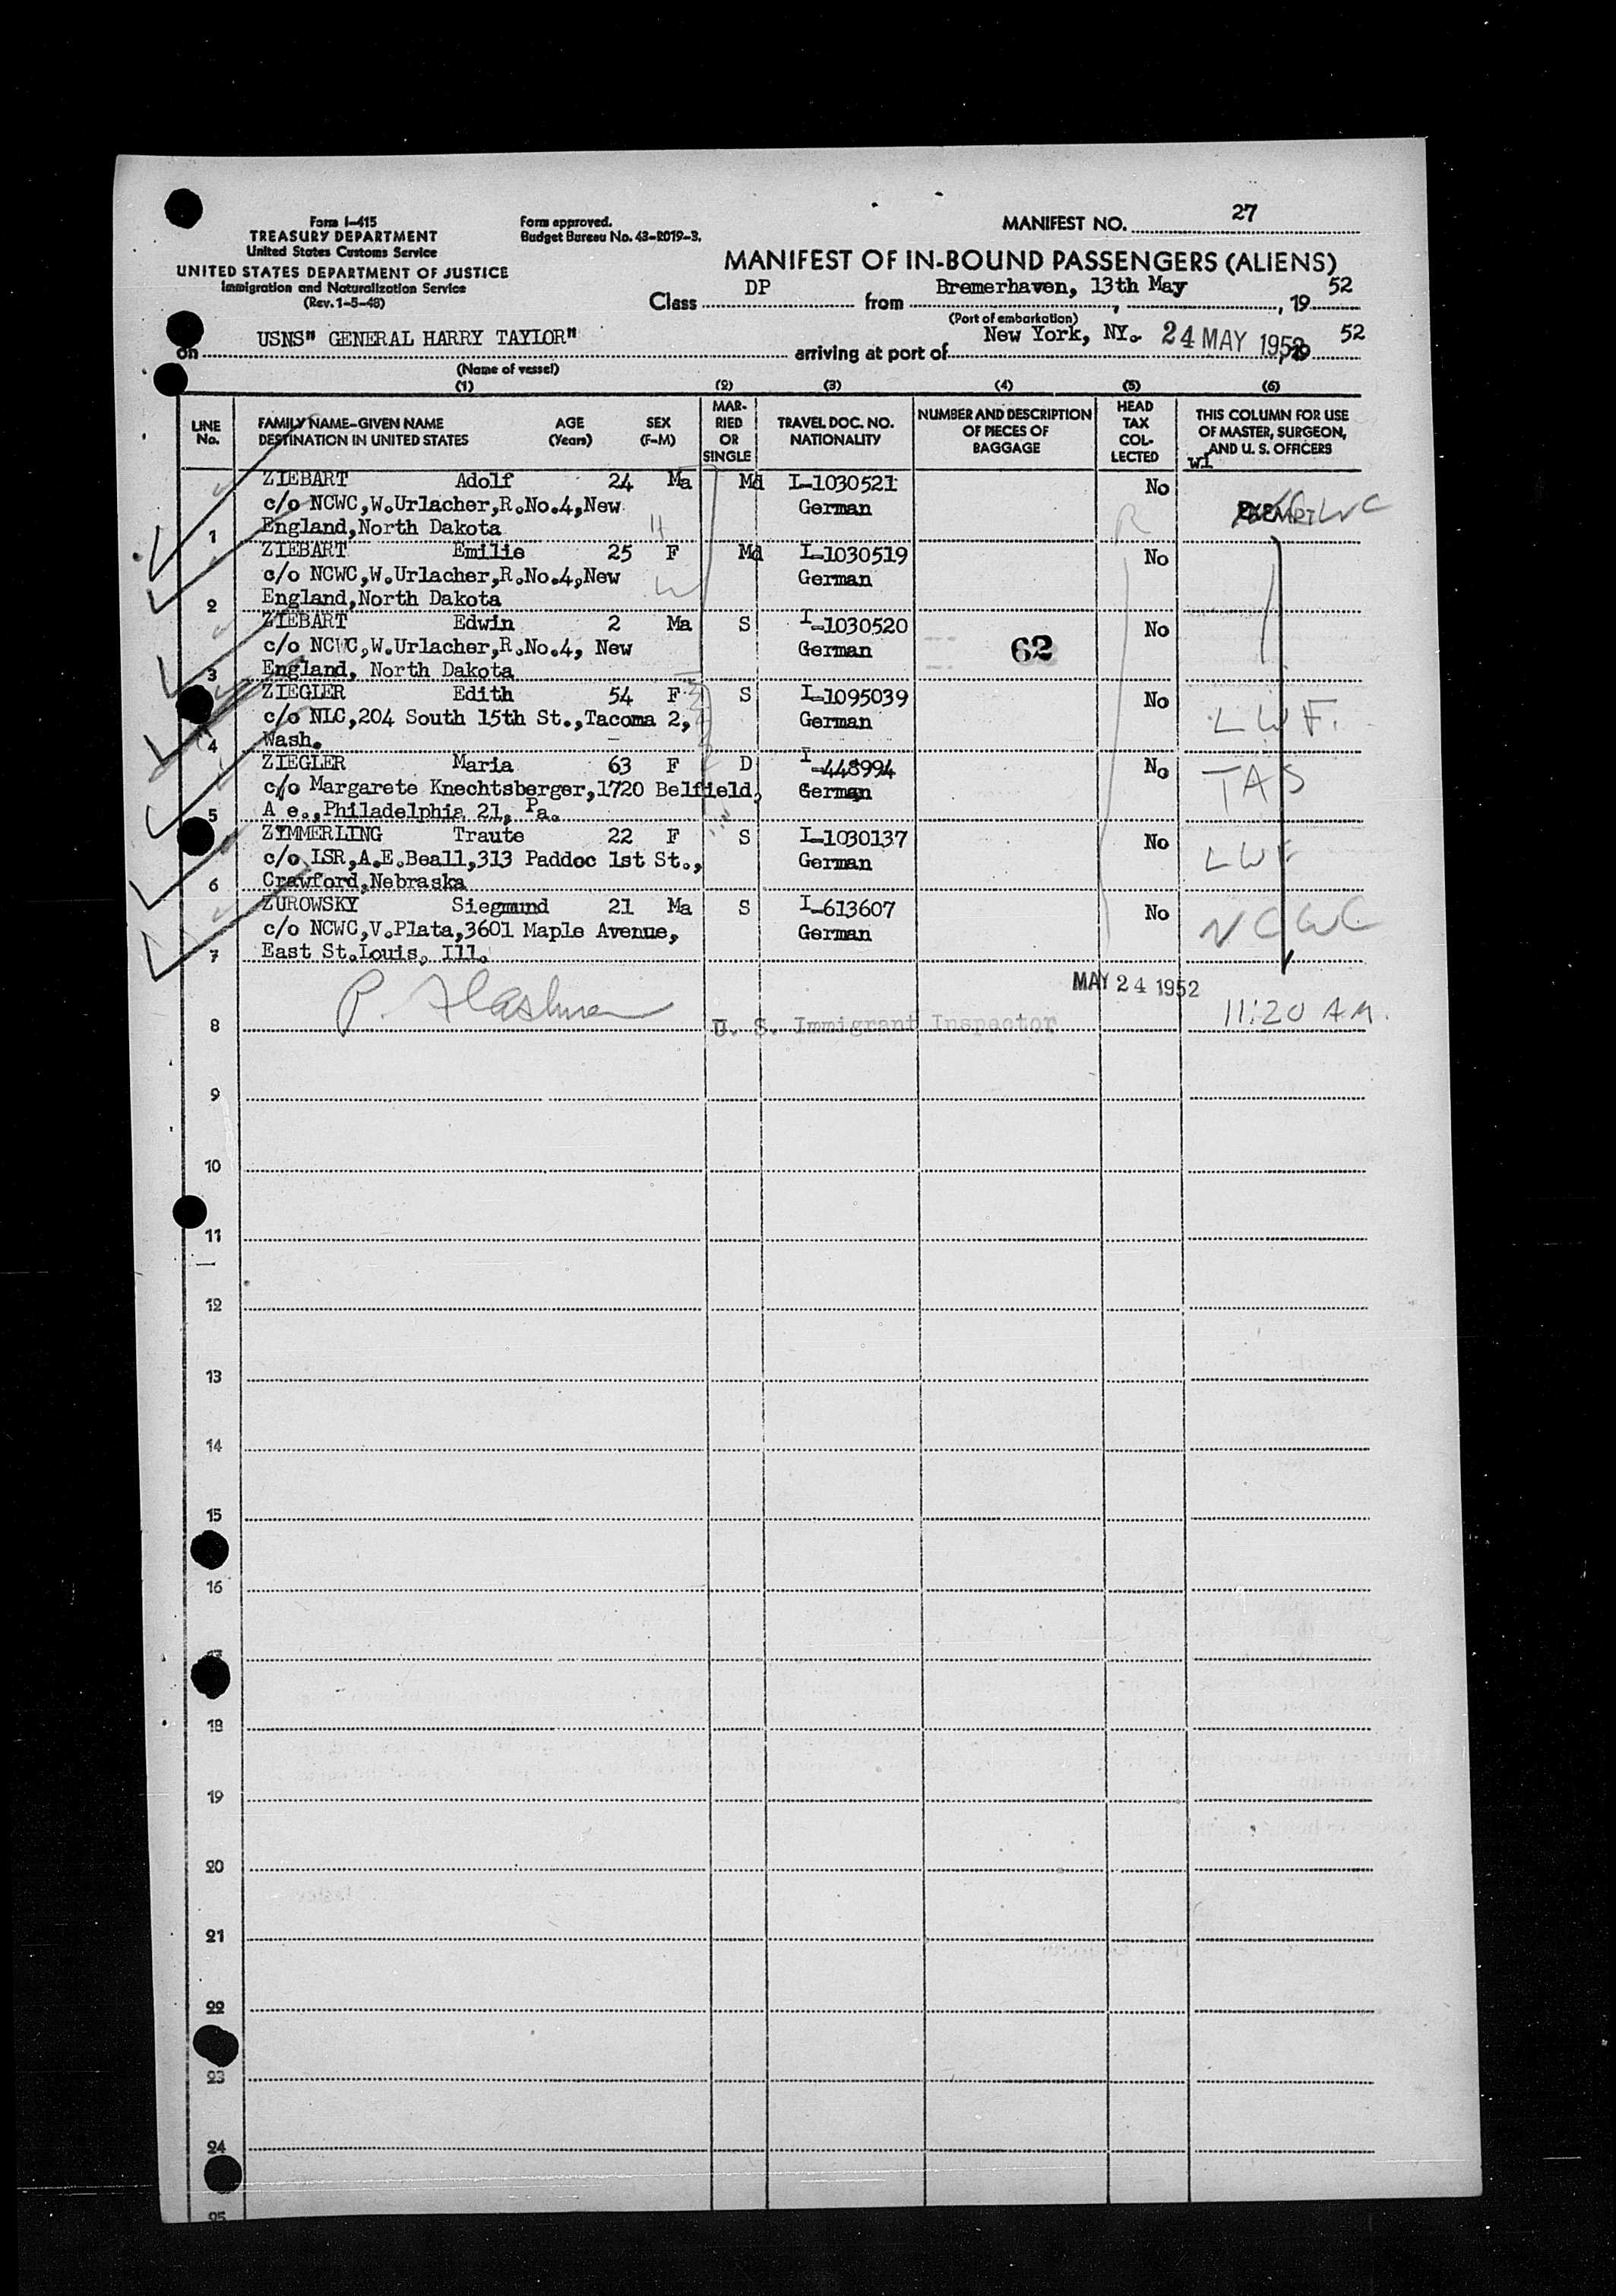 Form I-415
TREASURY DEPARTMENT
United States Customs Service
UNITED STATES DEPARTMENT OF JUSTICE
Immigration and Naturalization Service
(Rev. 1-5-48)
Form approved.
Budget Bureau No. 43-R019-3.
MANIFEST NO. 27
MANIFEST OF IN-BOUND PASSENGERS (ALIENS)
Class DP from Bremerhaven, 13th May, 19 52
(Port of embarkation)
on USNS" GENERAL HARRY TAYLOR" arriving at port of New York, NY. 24 MAY 1952, 19 52
(Name of vessel)
(1) (2) (3) (4) (5) (6)
LINE No.
FAMILY NAME-GIVEN NAME AGE SEX
DESTINATION IN UNITED STATES (Years) (F-M)
MAR-
RIED
OR
SINGLE
TRAVEL DOC. NO.
NATIONALITY
NUMBER AND DESCRIPTION
OF PIECES OF
BAGGAGE
HEAD
TAX
COL-
LECTED
THIS COLUMN FOR USE
OF MASTER, SURGEON,
AND U. S. OFFICERS
ZIEBART Adolf 24 Ma Md I-1030521 No
c/o NCWC,W.Urlacher,R.No.4,New German
1 England,North Dakota
ZIEBART Emilie 25 F Md I-1030519 No
c/o NCWC,W.Urlacher,R.No.4,New German
2 England,North Dakota
ZIEBART Edwin 2 Ma S I-1030520 No
c/o NCWC,W.Urlacher,R.No.4, New German 62
3 England, North Dakota
ZIEGLER Edith 54 F S I-1095039 No
c/o NLC,204 South 15th St.,Tacoma 2, German LWF.
4 Wash.
ZIEGLER Maria 63 F D I-448994 No
c/o Margarete Knechtsberger,1720 Belfield, German TAS
5 A e.,Philadelphia 21, Pa.
ZIMMERLING Traute 22 F S I-1030137 No
c/o LSR,A.E.Beall,313 Paddoc 1st St., German LWF
6 Crawford,Nebraska
ZUROWSKY Siegmund 21 Ma S I-613607 No
c/o NCWC,V.Plata,3601 Maple Avenue, German NCWC
7 East St.Louis, Ill.
MAY 24 1952
8 P. Flashman U. S. Immigrant Inspector 11:20 AM.
9
10
11
12
13
14
15
16
18
19
20
21
22
23
24
25